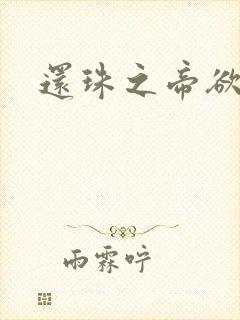 還珠之帝欲
雨霖咛